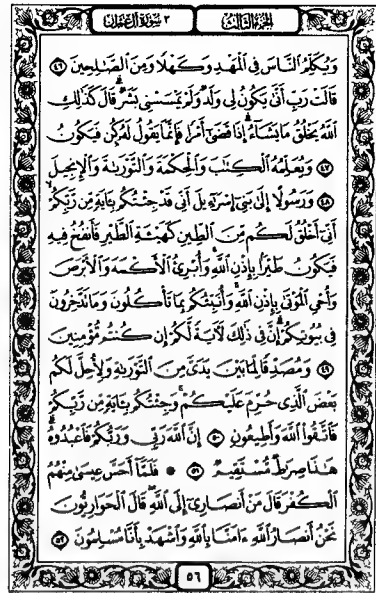 الجزء الثالث ٣ سورة آل عمران
وَيُكَلِّمُ ٱلنَّاسَ فِى ٱلْمَهْدِ وَكَهْلًا وَمِنَ ٱلصَّـٰلِحِينَ ٤٦
قَالَتْ رَبِّ أَنَّىٰ يَكُونُ لِى وَلَدٌ وَلَمْ يَمْسَسْنِى بَشَرٌ قَالَ كَذَٰلِكِ
ٱللَّهُ يَخْلُقُ مَا يَشَآءُ إِذَا قَضَىٰٓ أَمْرًا فَإِنَّمَا يَقُولُ لَهُۥ كُن فَيَكُونُ
٤٧ وَيُعَلِّمُهُ ٱلْكِتَـٰبَ وَٱلْحِكْمَةَ وَٱلتَّوْرَىٰةَ وَٱلْإِنجِيلَ
٤٨ وَرَسُولًا إِلَىٰ بَنِىٓ إِسْرَٰٓءِيلَ أَنِّى قَدْ جِئْتُكُم بِـَٔايَةٍ مِّن رَّبِّكُمْ
أَنِّىٓ أَخْلُقُ لَكُم مِّنَ ٱلطِّينِ كَهَيْـَٔةِ ٱلطَّيْرِ فَأَنفُخُ فِيهِ
فَيَكُونُ طَيْرًۢا بِإِذْنِ ٱللَّهِ وَأُبْرِئُ ٱلْأَكْمَهَ وَٱلْأَبْرَصَ
وَأُحْىِ ٱلْمَوْتَىٰ بِإِذْنِ ٱللَّهِ وَأُنَبِّئُكُم بِمَا تَأْكُلُونَ وَمَا تَدَّخِرُونَ
فِى بُيُوتِكُمْ إِنَّ فِى ذَٰلِكَ لَـَٔايَةً لَّكُمْ إِن كُنتُم مُّؤْمِنِينَ
٤٩ وَمُصَدِّقًا لِّمَا بَيْنَ يَدَىَّ مِنَ ٱلتَّوْرَىٰةِ وَلِأُحِلَّ لَكُم
بَعْضَ ٱلَّذِى حُرِّمَ عَلَيْكُمْ وَجِئْتُكُم بِـَٔايَةٍ مِّن رَّبِّكُمْ
فَٱتَّقُوا۟ ٱللَّهَ وَأَطِيعُونِ ٥٠ إِنَّ ٱللَّهَ رَبِّى وَرَبُّكُمْ فَٱعْبُدُوهُ
هَـٰذَا صِرَٰطٌ مُّسْتَقِيمٌ ٥١ ۞ فَلَمَّآ أَحَسَّ عِيسَىٰ مِنْهُمُ
ٱلْكُفْرَ قَالَ مَنْ أَنصَارِىٓ إِلَى ٱللَّهِ قَالَ ٱلْحَوَارِيُّونَ
نَحْنُ أَنصَارُ ٱللَّهِ ءَامَنَّا بِٱللَّهِ وَٱشْهَدْ بِأَنَّا مُسْلِمُونَ ٥٢
٥٦